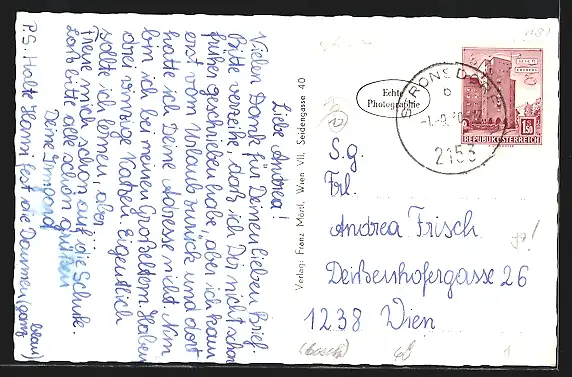 Liebe Andrea!
Vielen Dank für Deinen lieben Brief.
Bitte verzeihe, daß ich Dir nicht schon
früher geschrieben habe, aber ich kam
erst vom Urlaub zurück und dort
hatte ich Deine Adresse nicht. Nun
bin ich bei meinen Großeltern. Haben
drei winzige Katzen. Eigentlich
sollte ich lernen, aber
freue mich schon auf die Schule.
Laß bitte alle schön grüßen
Deine Irmgard
P.S. Halte Hanni fest die Daumen (ganz
blau)
Verlag: Franz Mörtl, Wien VII, Seidengasse 40
Echte
Photographie
STRONSDORF
b
-1.-9.70
2153
1.50
REPUBLIK ÖSTERREICH
S.g.
Frl.
Andrea Frisch
Deißenhofergasse 26
1238 Wien